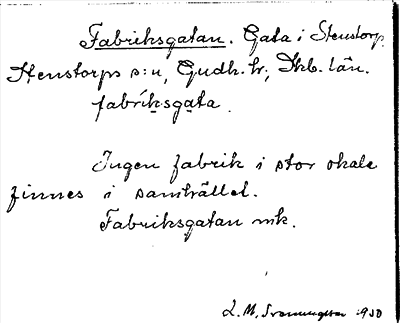 Fabriksgatan. Gata i Stenstorp,
Stenstorps s:n, Gudh. hr, Skb. län.
fabriksgata.
Ingen fabrik i stor skala
finnes i samhället.
Fabriksgatan mk.
L. M. 1930